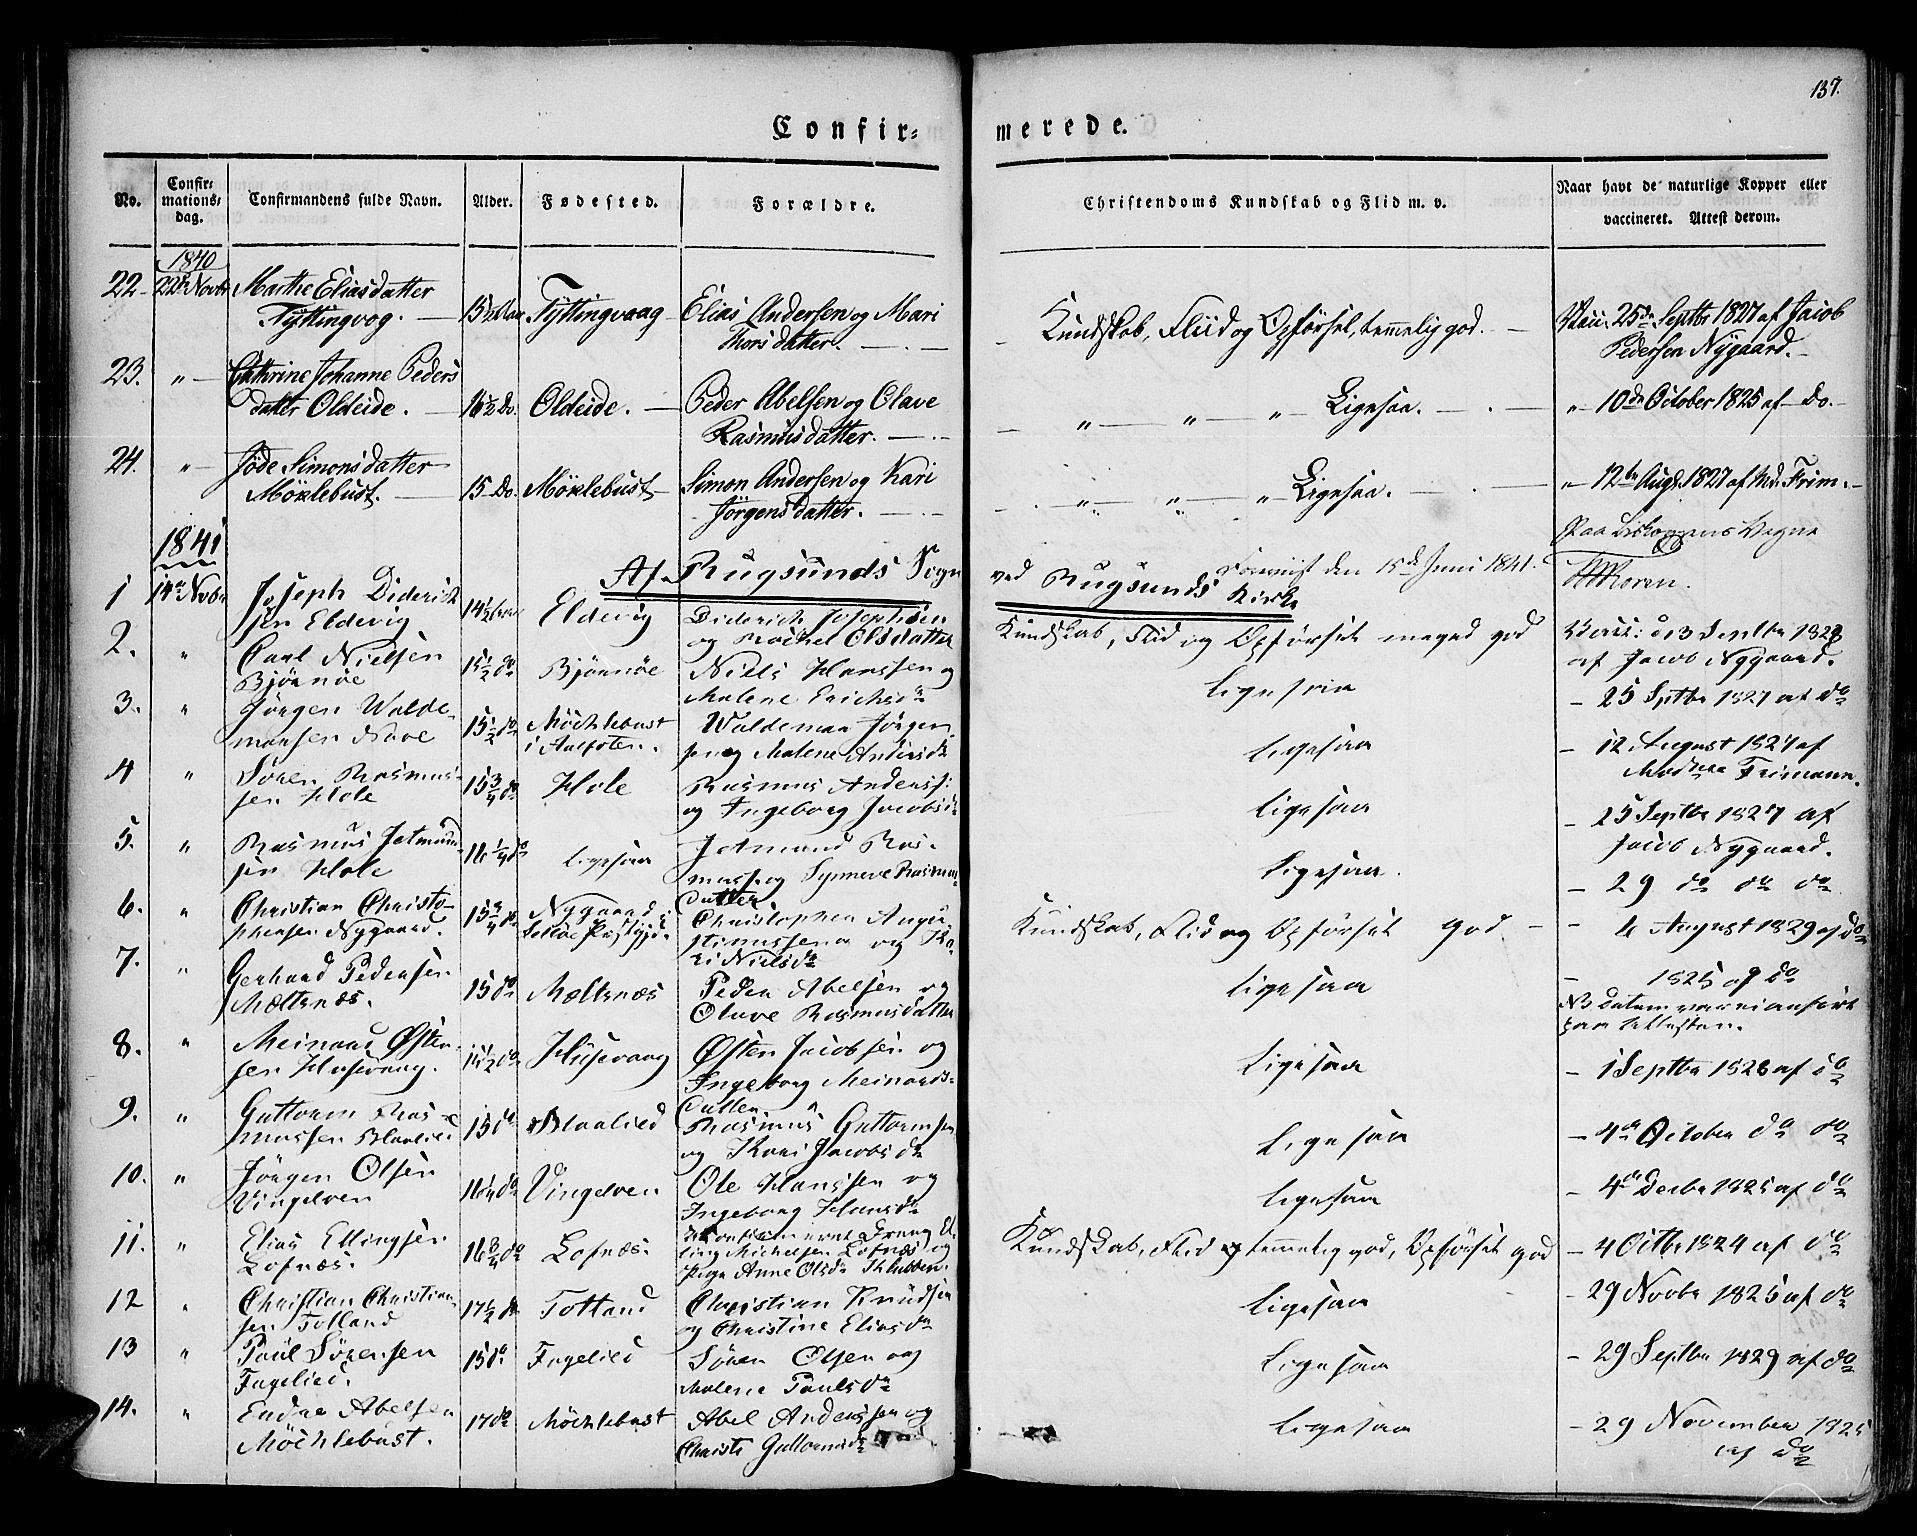 137.
Confir=
merede.
No.
Confir=
mations=
dag.
Confirmandens fulde Navn.
Alder.
Fødested.
Forældre.
Christendoms Kundskab og Flid m. v.
Naar havt de naturlige Kopper eller
vaccineret. Attest derom.
1840
22 22de Novbr Marthe Eliasdatter
Tyttingvog. 15½ Aar Tyttingvaag Elias Andersen og Mari
Thorsdatter. Kundskab, Fliid og Opførsel, temmelig god. Vacc. 25de Septbr 1827 af Jacob
Pedersen Nygaard.
23. " Cathrine Johanne Peders
datter Oldeide. 16½ Do. Oldeide. Peder Abelsen og Olave
Rasmusdatter. " " " Ligesaa. " 10de October 1825 af Do.
24. " Jøde Simonsdatter
Möklebust. 15 Do. Möklebust Simon Andersen og Kari
Jörgensdatter. " " " Ligesaa. " 12te Augs. 1827 af Md. Frim.
Paa Biskoppens Vegne
1841
Af Rugsunds Sogn
ved Rugsunds Kirke
den 15de Juni 1841.
1 14de Novbr Joseph Diderich
sen Eldevig 14½ Eldevig Diderich Josephsen
og Rachel Olsdatter Kundskab, Flid og Opförsel meged god Vacc: d 3 Septbr 1828
af Jacob Nygaard.
2. " Carl Nielsen
Björnöe 15½ do Björnöe Niels Hanssen og
Malene Erichsdr Ligesaa - 25 Septbr 1827 af do
3. " Jörgen Walde-
marsen Nave 15½ do Möchlebust
i Aalfoten. Waldemar Jörgen
sen og Malene Andersdr Ligesaa - 12 August 1827 af
Madme Frimann.
4 " Sören Rasmus-
sen Hole 15¾ do Hole Rasmus Anderss:
og Ingeborg Jacobsdr Ligesaa - 25 Septbr 1827 af
Jacob Nygaard.
5. " Rasmus Jetmund
sen Hole 16¼ do Ligesaa Jetmund Ras-
muss. og Synneve Rasmus
datter Ligesaa. - 29 do do do
6. " Christian Christo-
phersen Nygaard. 15¾ do Nygaard
Christopher Augu
stinussen og Ka
ri Nielsdr Kundskab, Flid og Opförsel god - 6 August 1829 af do
7. " Gerhard Pedersen
Mæltsnæs. 15 do Mæltsnæs Peder Abelsen og
Olave Rasmusdatter Ligesaa - 1825 af do
NB Datum var ei anfört
paa Attesten.
8. " Meinard Östen-
sen Husevaag. 14½ do Husevaag Östen Jacobsen og
Ingeborg Meinards-
datter Ligesaa - 1 Septbr 1828 af do
9. " Guttorm Ras-
mussen Blaalied 15 do Blaalied Rasmus Guttormsen
og Kari Jacobsdr Ligesaa - 4de October do do
10. " Jörgen Olsen
Vingelven 16¼ do Vingelven Ole Hanssen og
Ingeborg Hansdr Ligesaa - 4de Decbr 1825 af do
11. " Elias Ellingsen
Lofnæs. 16¾ do Lofnæs. Ukonfirmeret Dreng El
ling Michelsen Lofnæs og
Pige Anne Olsdr Klubben. Kundskab, Flid og temmelig god, Opförsel god - 4 Octbr 1824 af do
12 " Christian Christian-
sen Totland 17½ do Totland Christian Knudsen
og Christine Eliasdr Ligesaa - 29 Novbr 1825 af do
13 " Paul Sörensen
Fagelied. 15 do Fagelied Sören Olsen og
Malene Paulsdr Ligesaa - 29 Septbr 1829 af do
14. " Endre Abelsen
Möchlebust. 17 do Möchlebust Abel Anderssen og
Christi Guttormsdr Ligesaa - 29 November 1825
af do